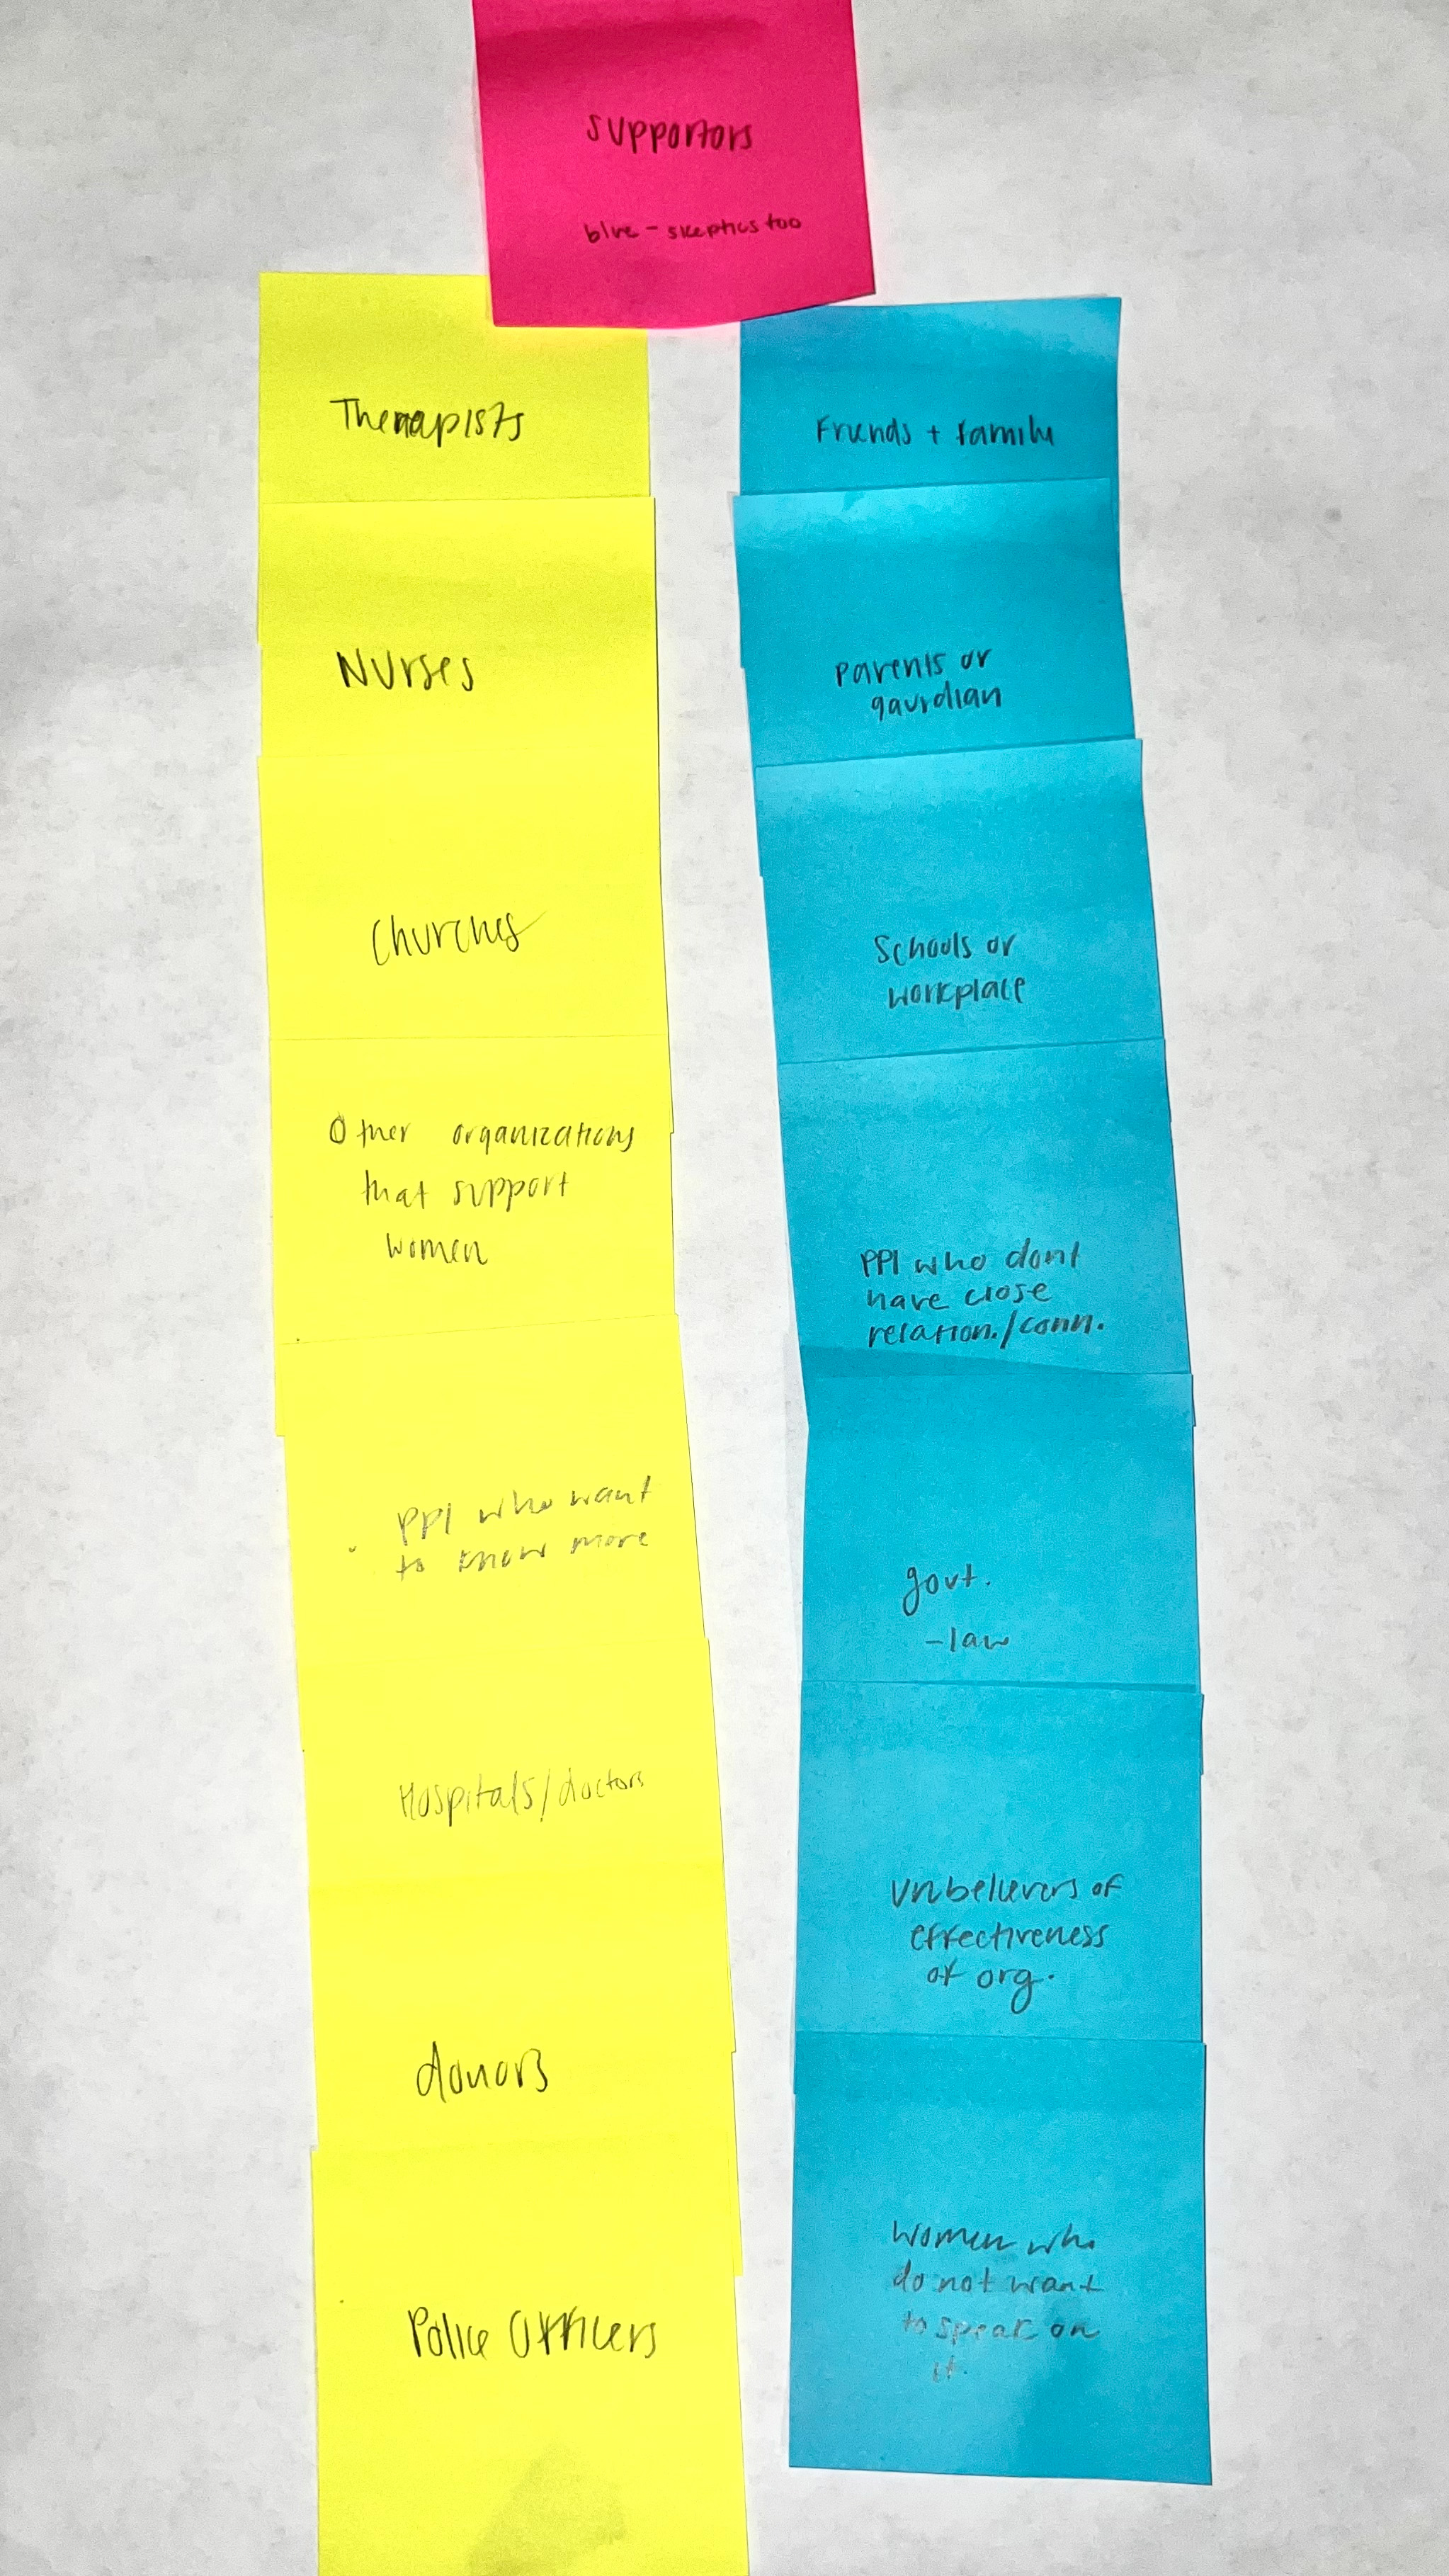 supporters
blue - skeptics too
Therapists
Nurses
Churches
Other organizations
that support
women
ppl who want
to know more
Hospitals/doctors
donors
Police Officers
Friends + family
parents or
gaurdian
Schools or
workplace
ppl who dont
have close
relation./conn.
govt.
-law
unbelievers of
effectiveness
of org.
women who
do not want
to speak on
it.